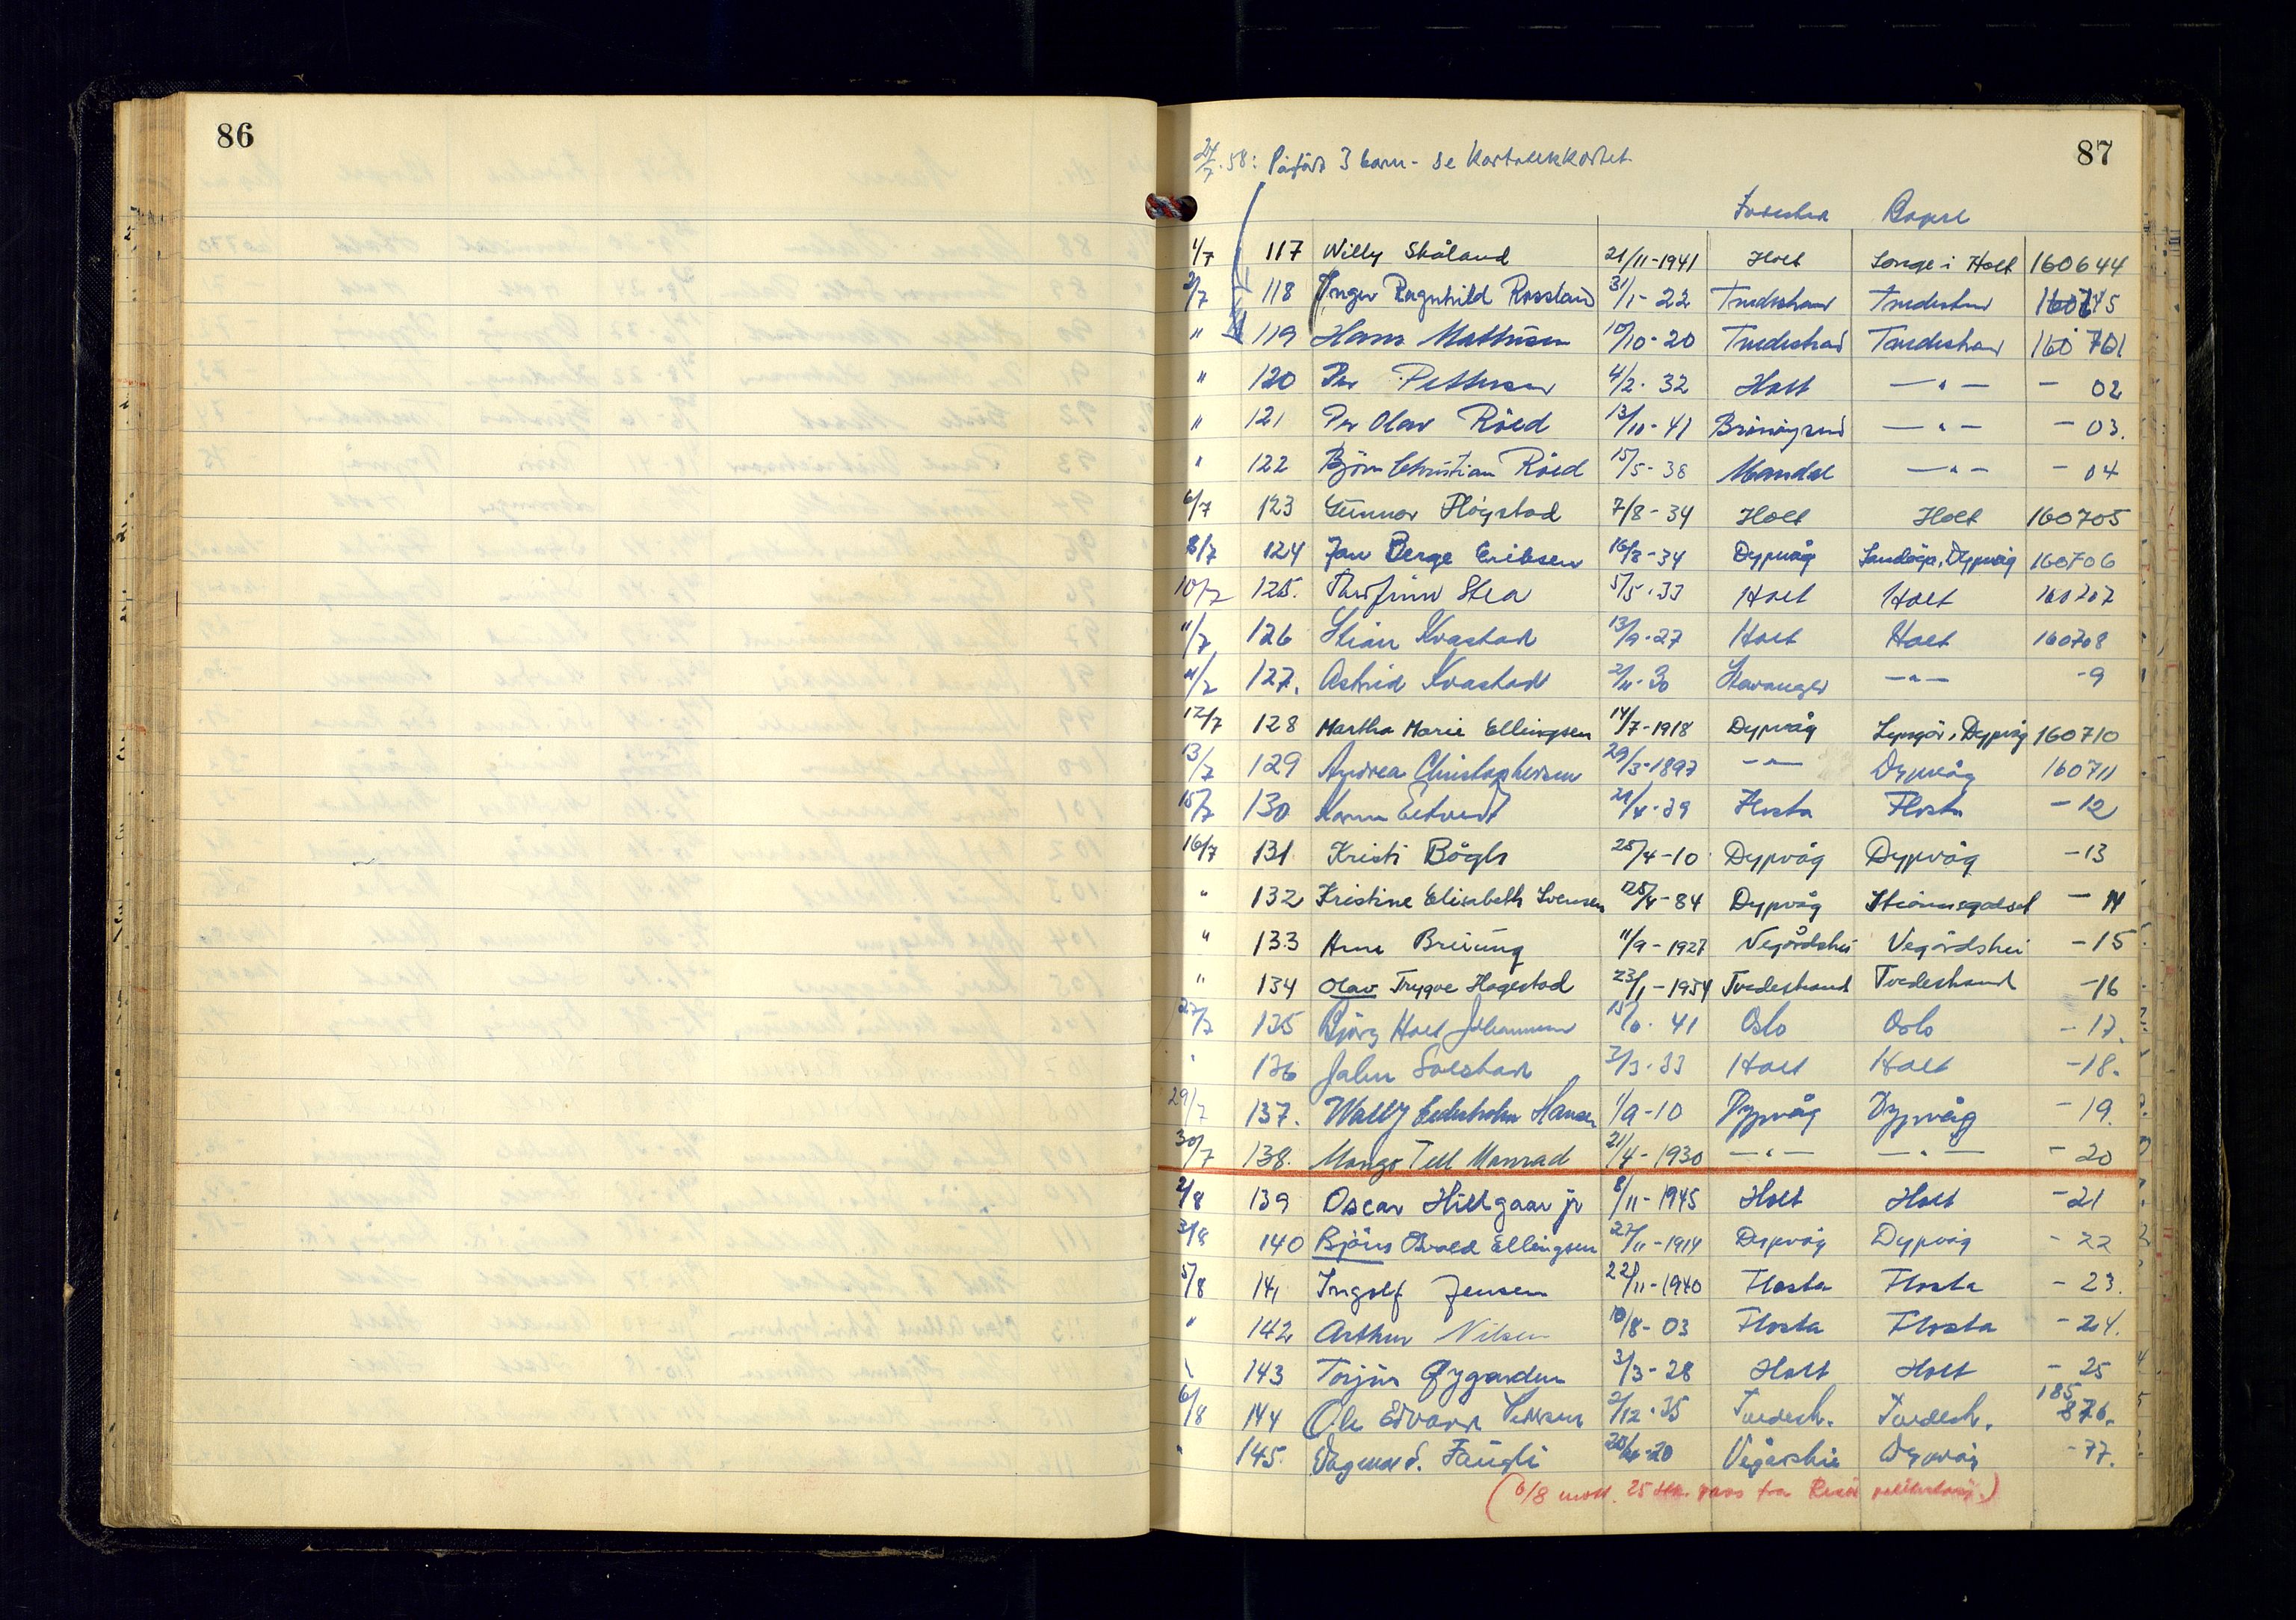 86
87
24/7.58: Påført 3 barn - se kartotekkortet
Fødested Bopel
1/7 117 Willy Skåland 21/11-1941 Holt Songe i Holt 160644
2/7 118 Inger Ragnhild Rossland 31/1-22 Tvedestrand Tvedestrand
" 119 Hans Mathisen 10/10-20 Tvedestrand Tvedestrand 160701
" 120 Per Pettersen 4/2-32 Holt —"— - 02
" 121 Per Olav Röed 13/10-41 —"— - 03.
" 122 Björn Christian Röed 15/5-38 Mandal —"— - 04
6/7 123 Gunnar Fløystad 7/8-34 Holt Holt 160705
8/7 124 Jan Berge Eriksen 16/8-34 Dypvåg Sandöya, Dypvåg 160706
10/7 125. Thorfinn Stea 5/5.33 Holt Holt 160707
11/7 126 Stian Kvastad 13/9-27 Holt Holt 160708
11/7 127. Astrid Kvastad Stavanger —"— -9
12/7 128 Martha Marie Ellingsen 14/7-1918 Dypvåg Lyngör, Dypvåg 160710
13/7 129 Andrea Christophersen 29/3-1897 —"— Dypvåg 160711
15/7 130 Flosta Flosta - 12
16/7 131 Kristi Bögh 25/4-10 Dypvåg Dypvåg -13
" 132 Kristine Elisabeth Svensen Dypvåg - 14
" 133 Arne Breiung 11/9-1927 Vegårdshei Vegårdshei -15
" 134 Olav Trygve Hagestad 23/1-1954 Tvedestrand Tvedestrand -16
27/7 135 Björg Holt Johannessen 15/6.41 Oslo Oslo - 17.
" 136 John Solstad 3/3.33 Holt Holt -18.
29/7 137. Wally Hansen 1/9-10 Dypvåg Dypvåg - 19.
30/7 138. Mongo Tell Monrad 21/4-1930 —"— —"— - 20
2/8 139 Oscar Hillgaar jr 8/11-1945 Holt Holt -21
3/8 140 Björn Osvald Ellingsen 27/11-1914 Dypvåg Dypvåg - 22
5/8 141 Ingolf Jensen 22/11-1940 Flosta Flosta - 23.
" 142 Arthur Nilsen 10/8-03 Flosta Flosta - 24.
143 Torjus Øygarden 3/3-28 Holt Holt - 25
6/8 144 Ole Edvard 2/12.35 Tvedestr. Tvedestr. 185 876.
" 145. Dagmar S. Faugli Vegårshei Dypvåg -77.
(6/8 mott. 25 stk. pass fra Risör politikammer.)